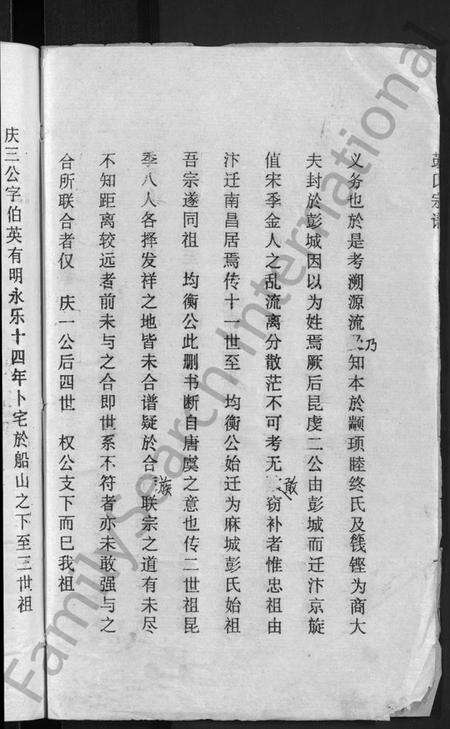 彭氏宗谱
义务也於是考溯源流乃知本於颛顼睦终氏及钱铿为商大
夫封於彭城因以为姓焉厥后昆虔二公由彭城而迁汴京旋
值宋季金人之乱流离分散茫不可考无敢窃补者惟忠祖由
汴迁南昌居焉传十一世至 均衡公始迁为麻城彭氏始祖
吾宗遂同祖 均衡公此删书断自唐虞之意也传二世祖昆
季八人各择发祥之地皆未合谱疑於合族联宗之道有未尽
不知距离较远者前未与之合即世系不符者亦未敢强与之
合所联合者仅 庆一公后四世 权公支下而巳我祖
庆三公字伯英有明永乐十四年卜宅於船山之下至三世祖
FamilySearch International